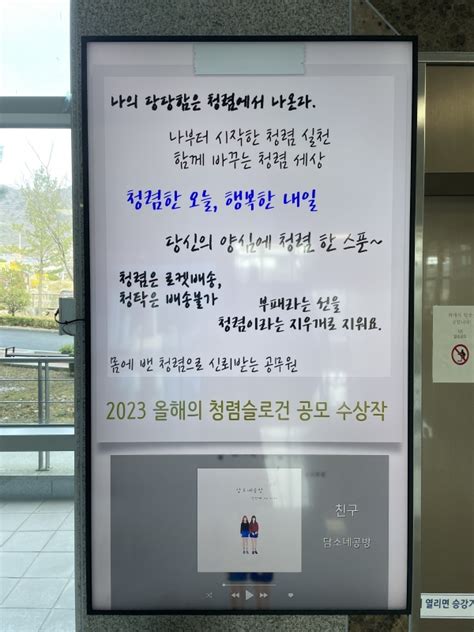 나의 당당함은 청렴에서 나온다.
나부터 시작한 청렴 실천
함께 바꾸는 청렴 세상
청렴한 오늘, 행복한 내일
당신의 양심에 청렴 한 스푼~
청렴은 로켓배송,
청탁은 배송불가
부패라는 선을
청렴이라는 지우개로 지워요.
몸에 밴 청렴으로 신뢰받는 공무원
2023 올해의 청렴슬로건 공모 수상작
담소네공방
친구
담소네공방
열리면 승강기